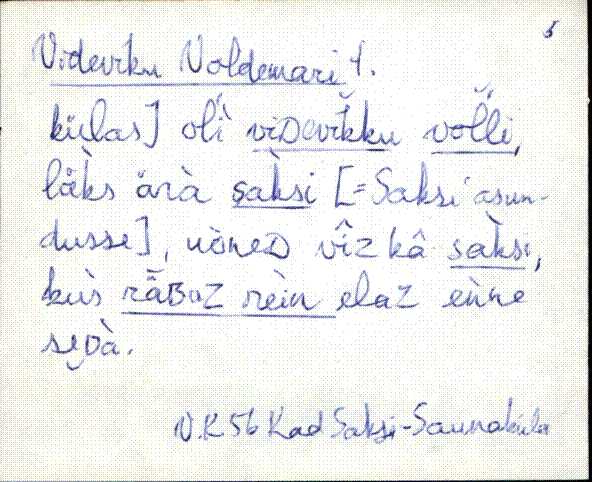 5
Videvƙku Voldemari t.
külas] oĺì viDevĭkku voĺ̆ĺi,
lä̀ks ärà sàksi [=Saksi asun-
dusse], nòneD vîz kâ sàksi,
kùs rä̆BaZ rèin elaZ ènne
sedà.
N.K 56 Kad Saksi-Saunaküla